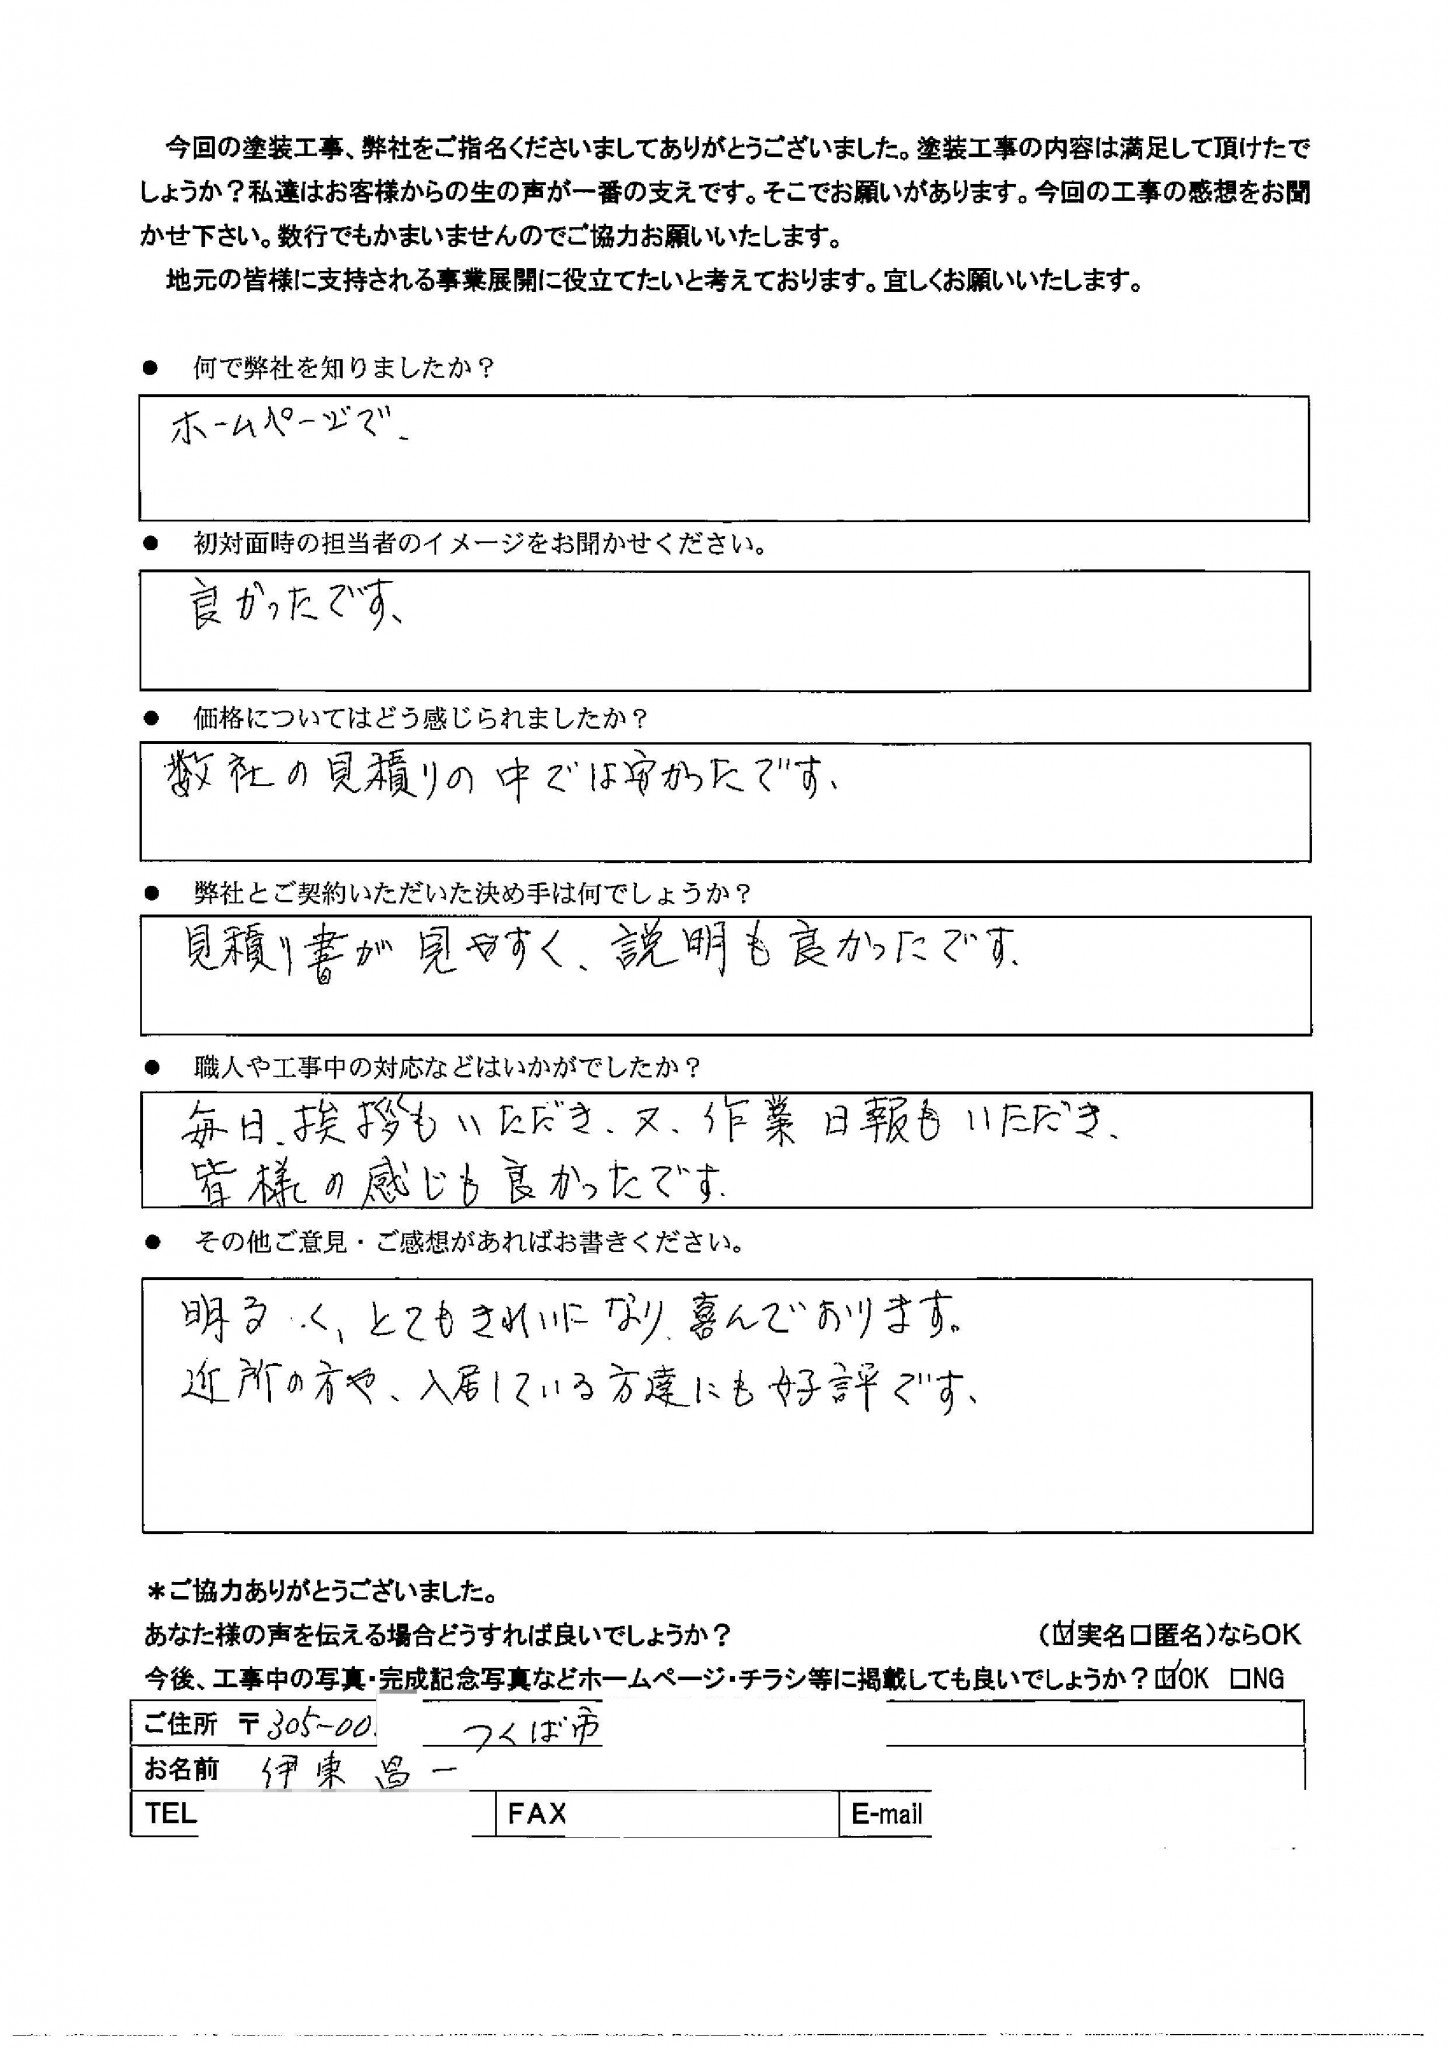 今回の塗装工事、弊社をご指名くださいましてありがとうございました。塗装工事の内容は満足して頂けたで
しょうか？私達はお客様からの生の声が一番の支えです。そこでお願いがあります。今回の工事の感想をお聞
かせ下さい。数行でもかまいませんのでご協力お願いいたします。
地元の皆様に支持される事業展開に役立てたいと考えております。宜しくお願いいたします。
● 何で弊社を知りましたか？
ホームページで、
● 初対面時の担当者のイメージをお聞かせください。
良かったです、
● 価格についてはどう感じられましたか？
数社の見積りの中では安かったです、
● 弊社とご契約いただいた決め手は何でしょうか？
見積り書が見やすく、説明も良かったです、
● 職人や工事中の対応などはいかがでしたか？
毎日、挨拶もいただき、又、作業日報もいただき、
皆様の感じも良かったです、
● その他ご意見・ご感想があればお書きください。
明るく、とてもきれいになり、喜んでおります。
近所の方や、入居している方達にも好評です、
＊ご協力ありがとうございました。
あなた様の声を伝える場合どうすれば良いでしょうか？ （☑実名□匿名）ならOK
今後、工事中の写真・完成記念写真などホームページ・チラシ等に掲載しても良いでしょうか？☑OK □NG
ご住所 〒305-00 つくば市
お名前 伊東 昌一
TEL FAX E-mail